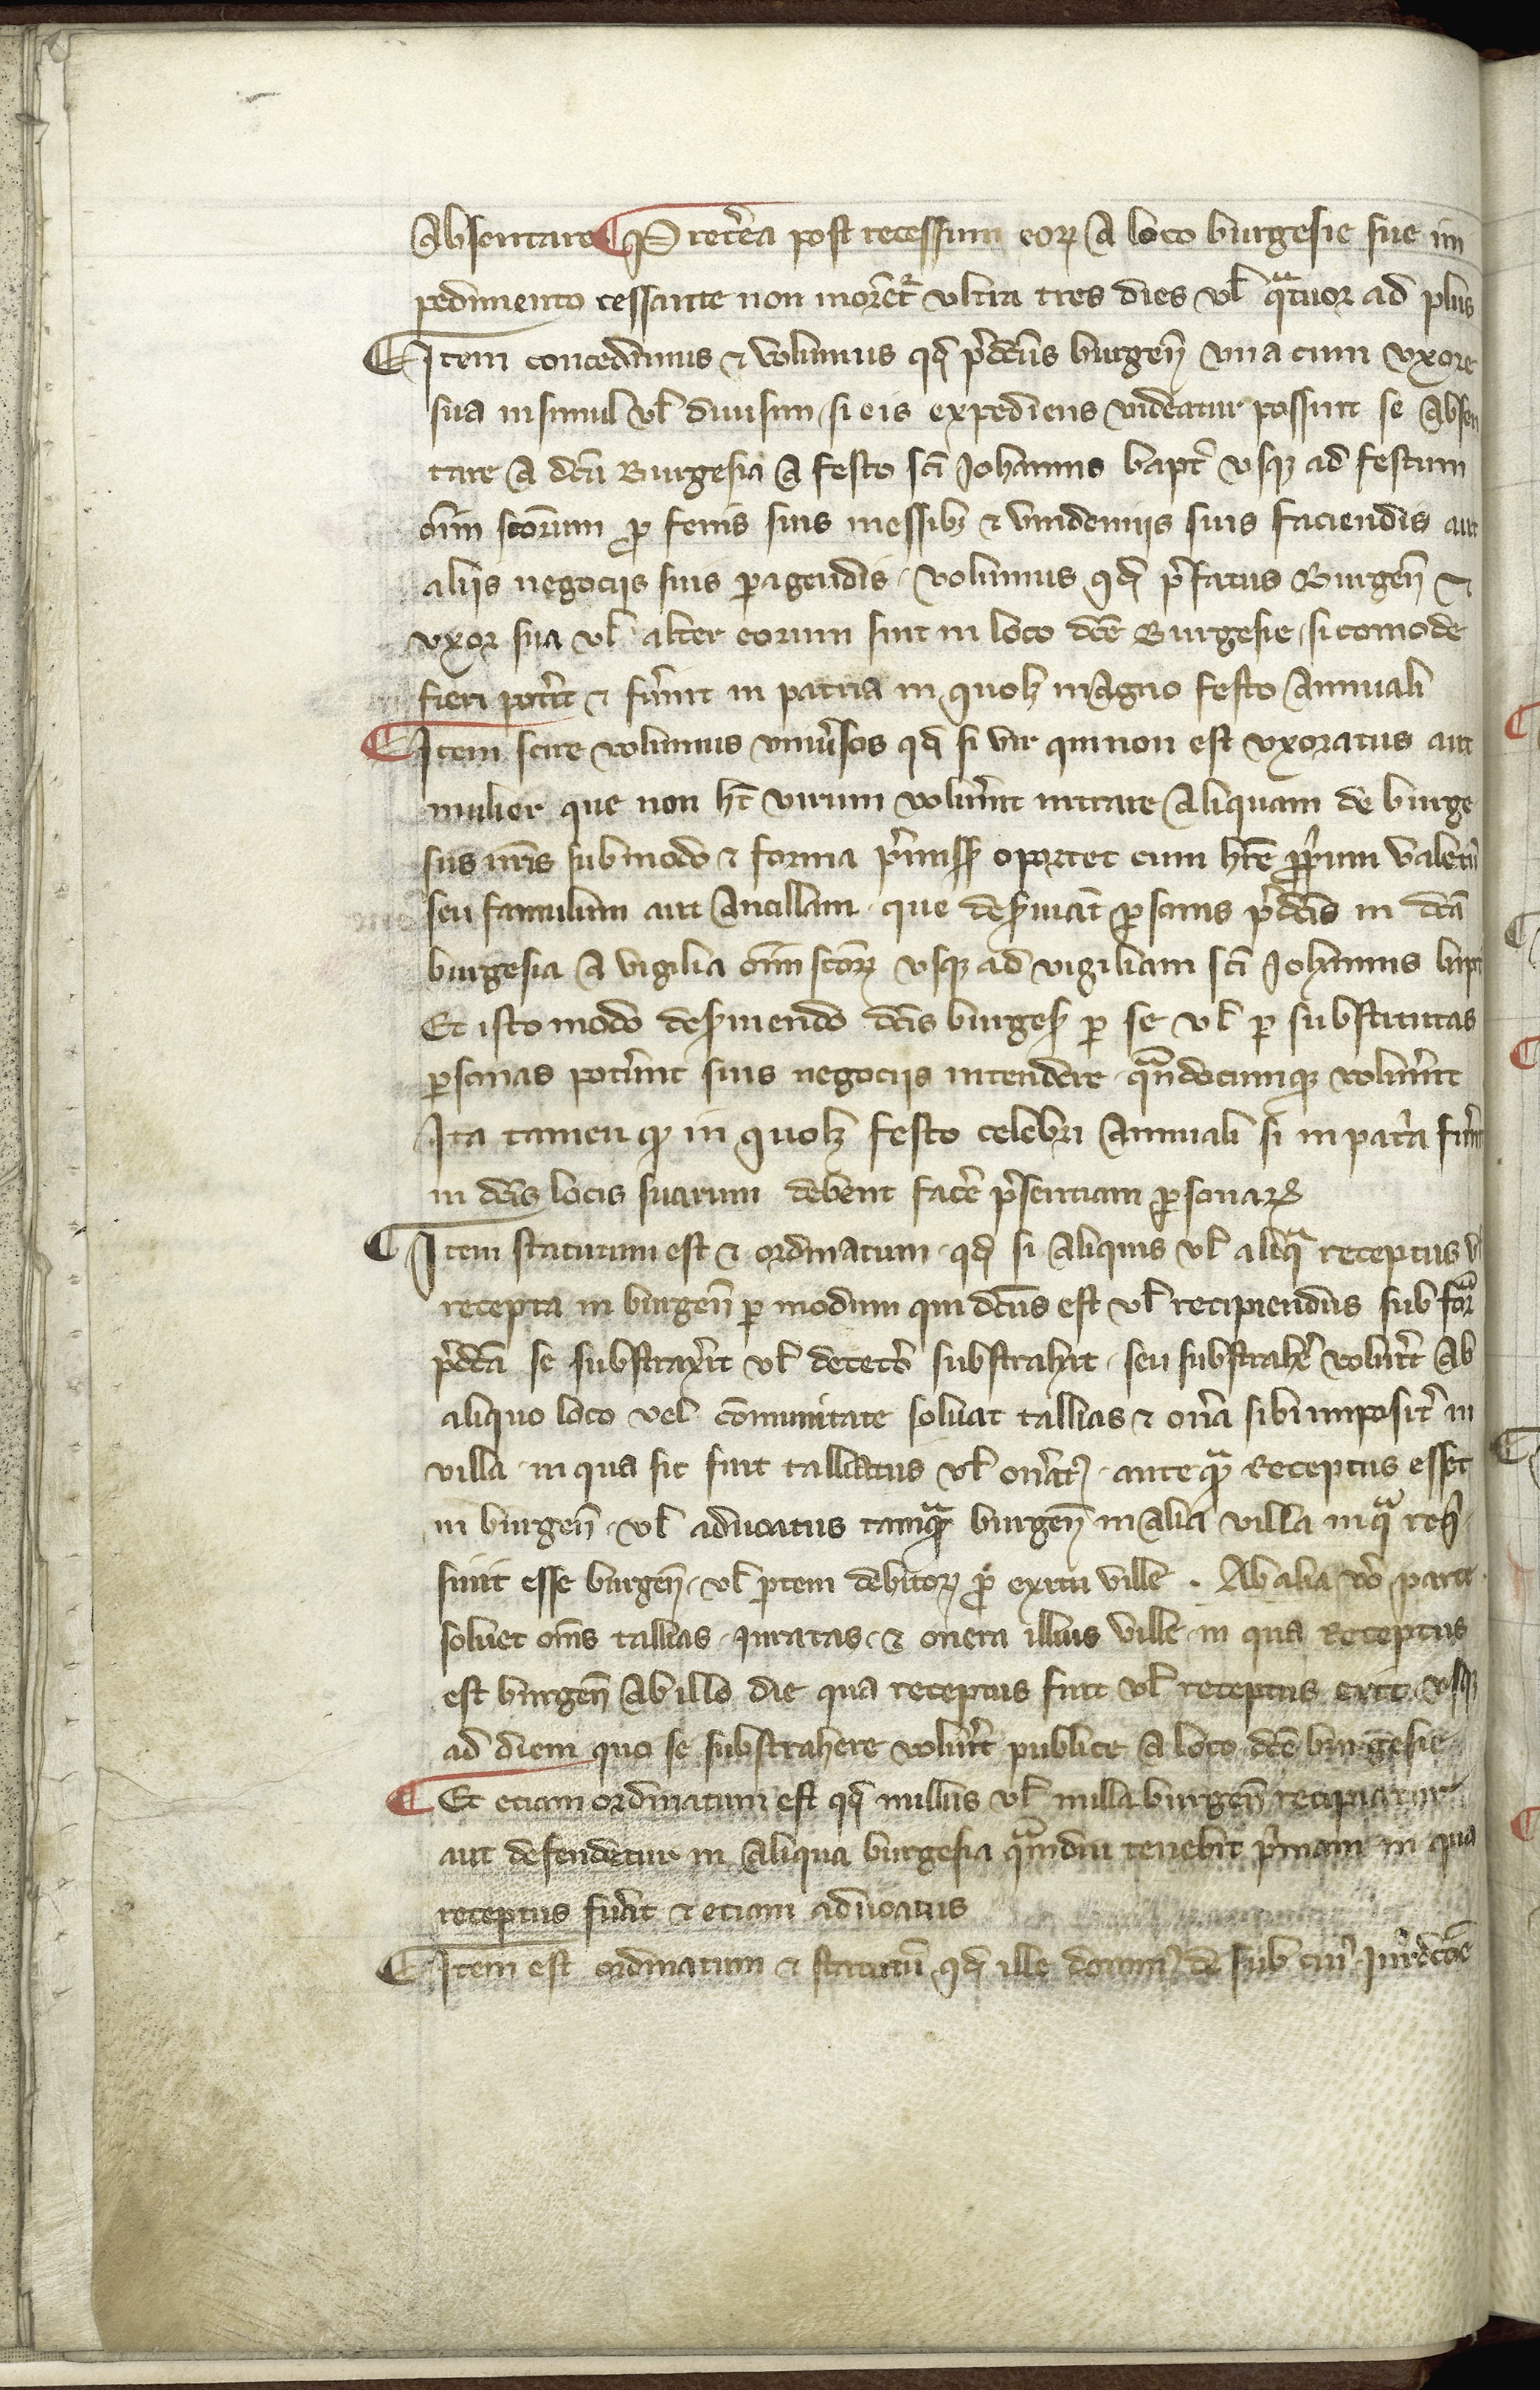 Absentare ¶ Pret̃ea post recessum eoꝝ a loco burgesie sue im
pedimento cessante non morẽt᷑ vltra tres dies vl̃ qᵃtuor ad plus
¶ Item concedimus ⁊ volumus qd̃ p̃dc̃us burgeñ vna cum vxore
sua insimul vl̃ diuisim si eis expediens videatur possint se absen
tare a dc̃a Burgesia a festo sc̃i Johannis bapt̃ vsqꝫ ad festum
om̃i sc̃orum ꝓ fenis suis messibꝫ ⁊ vindemiis suis faciendis aut
aliis negociis suis ꝑagendis volumus qd̃ p̃fatus Burgeñ ⁊
vxor sua vl̃ alter eorum sint in loco dc̃e Burgesie si comode
fieri pot̃it ⁊ fũint in patria in quolꝫ magno festo annuali
¶ Item scire volumus vniũsos qd̃ si vir qui non est vxoratus aut
mulier que non hr̃t virum volũint intrare aliquam de burge
siis nr̃is sub modo ⁊ forma p̃miss̃ oportet eum hr̃e ꝓp̃ium valetũ
seu famulum aut ancillam que deẞuiãt ꝑsonis p̃dc̃is in dc̃a
burgesia a vigilia om̃i sc̃oꝝ vsqꝫ ad vigiliam sc̃i Johannis bapt̃
Et isto modo deẞuiendo dc̃is burgeſ̃ ꝑ se vl̃ ꝑ substitutas
ꝑsonas potũint suis negociis intendere qᵃndocumqꝫ volũint
Ita tamen qꝫ in quolꝫ festo celebri annuali si in pat̃a fũint
in dc̃is locis suarum debent fac̃e p̃sentiam ꝑsonaꝝ
¶ Item statutum est ⁊ ordinatum qd̃ si aliquis vl̃ aliqᵃ receptus vl̃
recepta in burgeñ ꝑ modum qui dc̃us est vl̃ recipiendus sub forᵃ
p̃dc̃a se substrax̃it vl̃ detect̃ substrahit seu substrah̃e volũit ab
aliquo loco vel cõmunitate soluat tallias ⁊ oñea sibi imposit̃ in
villa in qua sic fuit talliatus vl̃ oñatꝰ anteqᵃ receptus esset
in burgeñ vl̃ aduoatus tamqᵃ burgeñ in alia villa in qᵃ
esse burgeñ vl̃ ꝑtem debitoꝝ ꝓ exitu ville . Ab alia ṽo parte
soluet om̃s tallias iuratas ⁊ onera illius ville in qua receptus
est burgeñ ab illo die qua receptus fuit vl̃ receptus erit vsqꝫ
ad diem quo se substrahere volũit publice a loco dc̃e burgesie
¶ Et etiam ordinatum est qd̃ nullus vl̃ nulla burgeñ recipiatur
aut defendetur in aliqua burgesia qᵃmdiu tenebit p̃mam in qua
receptus fũit ⁊ etiam aduoatus
¶ Item est ordinatum ⁊ statutũ qd̃ ille dominꝰ de sub cuiꝰ jur̃dc̃oe